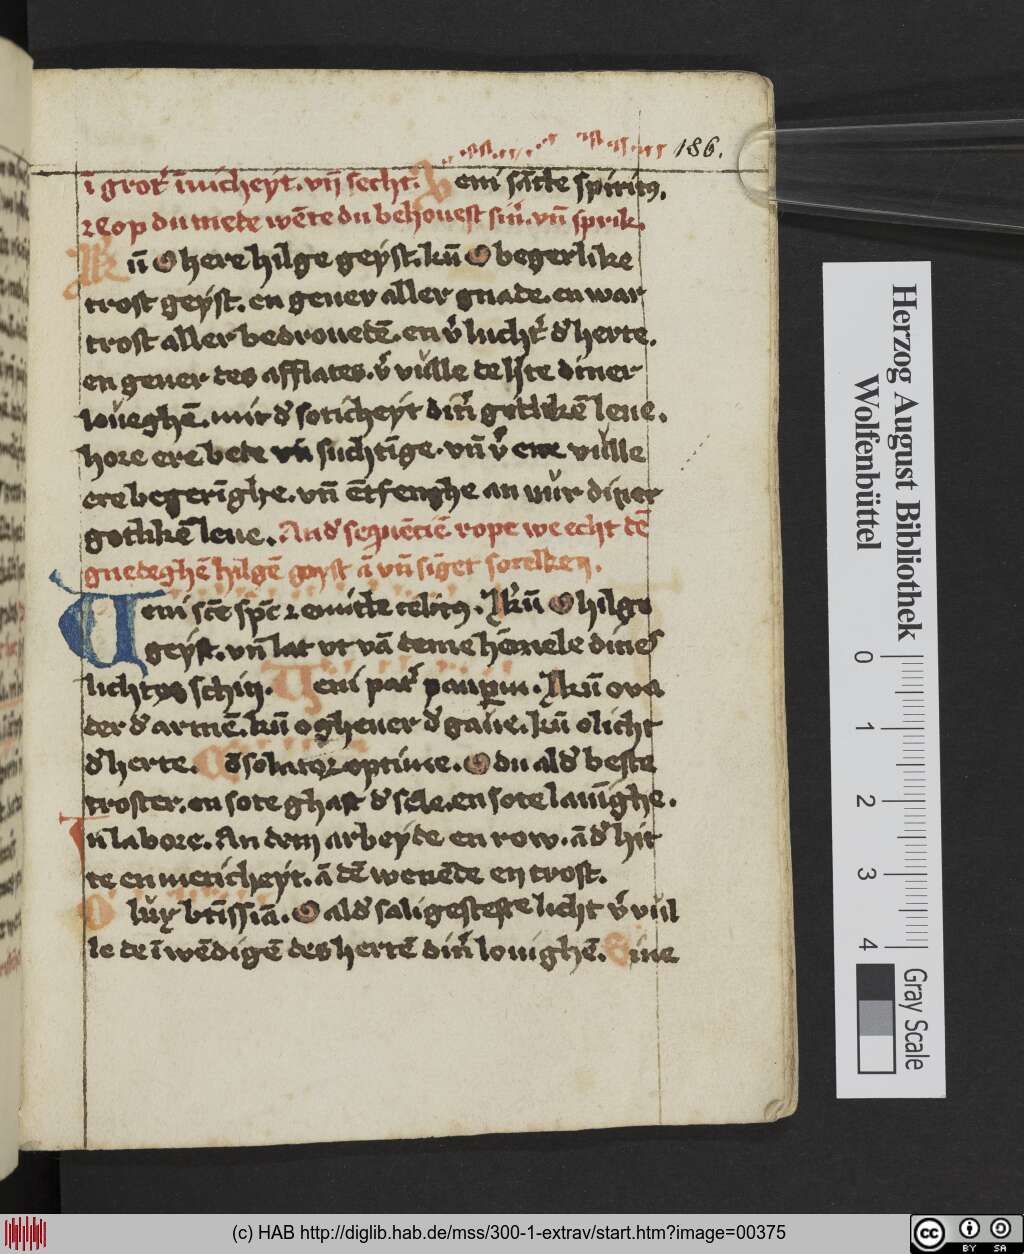 186.
ī grot᷑ īnicheyt. vn̄ secht. Veni sācte spiritus.
rēop du mede wēte du behouest sin᷑. vn̄ sprik.
Kū O here hilge geyst. kū O begerlike
trost geyst. en geuer aller gnade. en war
trost aller bedrouedē. en v᷑ lucht᷑ d᷑ herte.
en geuer des afflates. v᷑ vulle de h᷑te diner
loueghē. mit d᷑ soticheyt din᷑ gotlikē leue.
hore ere bede vn̄ suchtīge. vn̄ v᷑
ere begerīghe. vn̄ ētfenghe an vur diner
gotlikē leue. An d᷑ sequēciē rope we echt dē
gnedeghē hilgē geyst ā vn̄ sīget
Veni sc̄e sp̄c emitte celitus. Kū O hilge
geyst. vn̄ lat vt vā deme hēmele dines
lichtes schin. Veni pat᷑ paup̄um. Kū o va
der d᷑ armē. kū o gheuer d᷑ gaue. kū o licht
d᷑ herte. Cōsolator optime. O du ald᷑ beste
troster. en sote ghast d᷑ sele. en sote lauīghe.
In labore. An dem arbeyde en row. ā d᷑ hit
te en meticheyt. ā dē wenēde en trost.
O lux btīssīa. O ald᷑ saligesteste licht v᷑ vul
le de īwēdigē des hertē din᷑ louighē. Sine
Herzog August Bibliothek
Wolfenbüttel
0 1 2 3 4
Gray Scale
(c) HAB http://diglib.hab.de/mss/300-1-extrav/start.htm?image=00375
cc BY SA